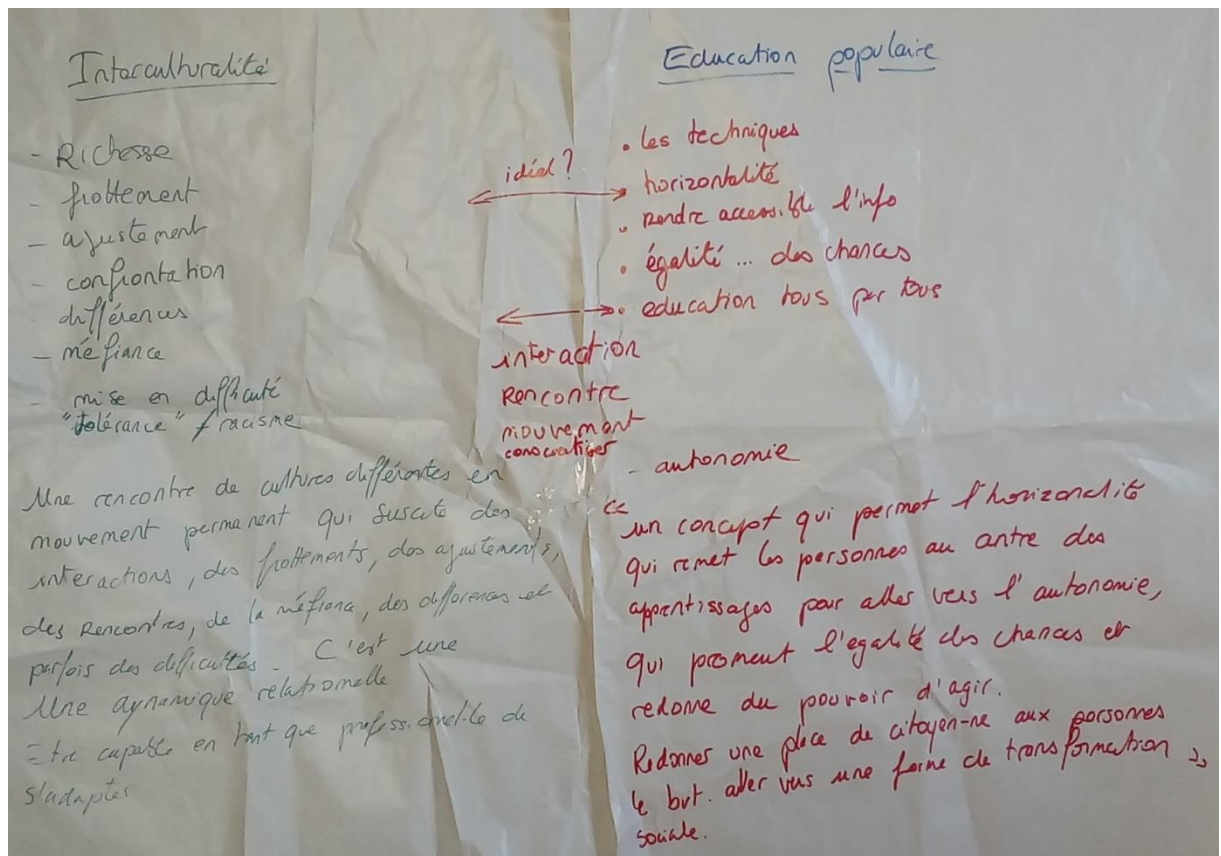 Interculturalité
- Richesse
- frottement
- ajustement
- confrontation
- différences
- méfiance
- mise en difficulté
"tolérance" ≠ racisme
Une rencontre de cultures différentes en
mouvement permanent qui suscite des
interactions, des frottements, des ajustements,
des Rencontres, de la méfiance, des différences et
parfois des difficultés. C'est une
Une dynamique relationnelle
Etre capable en tant que professionnel-le de
s'adapter
idéal ?
interaction
Rencontre
mouvement
Education populaire
• les techniques
horizontalité
• rendre accessible l'info
• égalité ... des chances
• education tous par tous
- autonomie
"un concept qui permet l'horizonalité
qui remet les personnes au centre des
apprentissages pour aller vers l'autonomie,
qui promeut l'égalité des chances et
redonne du pouvoir d'agir.
Redonner une place de citoyen-ne aux personnes
le but. aller vers une forme de transformation
sociale.